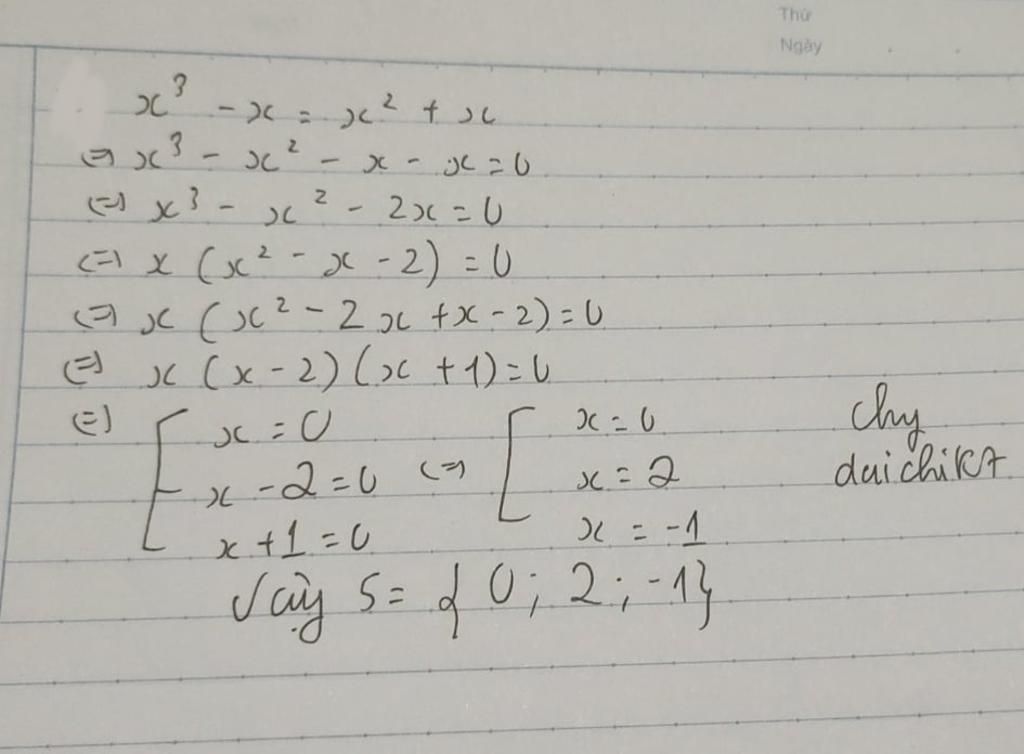 Thứ
Ngày
x³ - x = x² + x
⇔ x³ - x² - x - x = 0
⇔ x³ - x² - 2x = 0
⇔ x (x² - x - 2) = 0
⇔ x (x² - 2x + x - 2) = 0
⇔ x (x - 2) (x + 1) = 0
⇔ [ x = 0 ⇔ [ x = 0
x - 2 = 0 x = 2
x + 1 = 0 x = -1
Chy
daichikt
Vậy S = { 0 ; 2 ; -1}